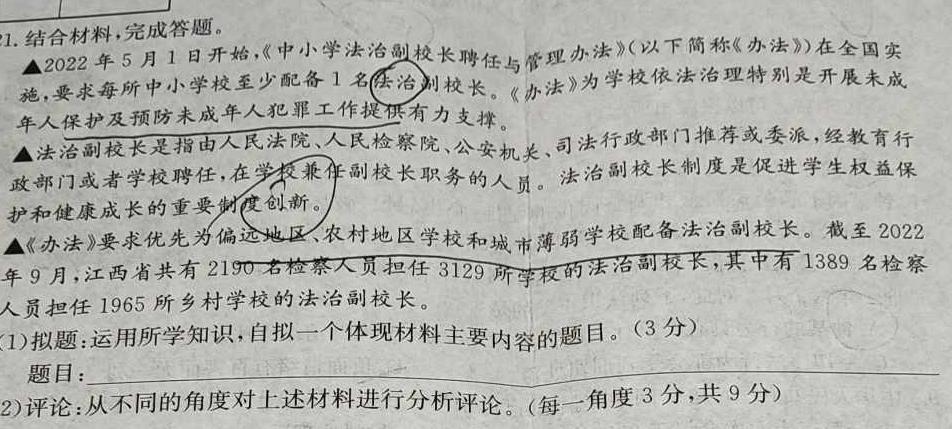 21. 结合材料,完成答题。
▲2022年5月1日开始,《中小学法治副校长聘任与管理办法》(以下简称《办法》)在全国实
施,要求每所中小学校至少配备1名法治副校长。《办法》为学校依法治理特别是开展未成
年人保护及预防未成年人犯罪工作提供有力支撑。
▲法治副校长是指由人民法院、人民检察院、公安机关、司法行政部门推荐或委派,经教育行
政部门或者学校聘任,在学校兼任副校长职务的人员。法治副校长制度是促进学生权益保
护和健康成长的重要制度创新。
▲《办法》要求优先为偏远地区、农村地区学校和城市薄弱学校配备法治副校长。截至2022
年9月,江西省共有2190名检察人员担任3129所学校的法治副校长,其中有1389名检察
人员担任1965所乡村学校的法治副校长。
(1)拟题:运用所学知识,自拟一个体现材料主要内容的题目。(3分)
题目:
2)评论:从不同的角度对上述材料进行分析评论。(每一角度3分,共9分)